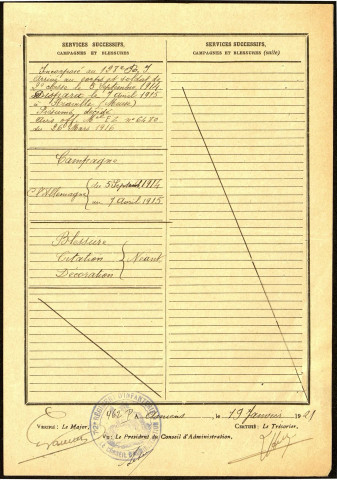 SERVICES SUCCESSIFS,
CAMPAGNES ET BLESSURES
Incorporé au 128e
Arrivé au corps et soldat de
2e classe le 5 Septembre 1914
Disparu le 7 Avril 1915
à (Meuse)
Présumé décédé
Avis off. Mel F.L. no 6480
du 26 Mars 1916
Campagne
Ct l'Allemagne du 5 Sept 1914
au 7 Avril 1915
Blessure
Citation Néant
Décoration
SERVICES SUCCESSIFS,
CAMPAGNES ET BLESSURES (suite)
A Amiens, le 19 Janvier 1921
VÉRIFIÉ : Le Major,
CERTIFIÉ : Le Trésorier,
Vu : Le Président du Conseil d'Administration,